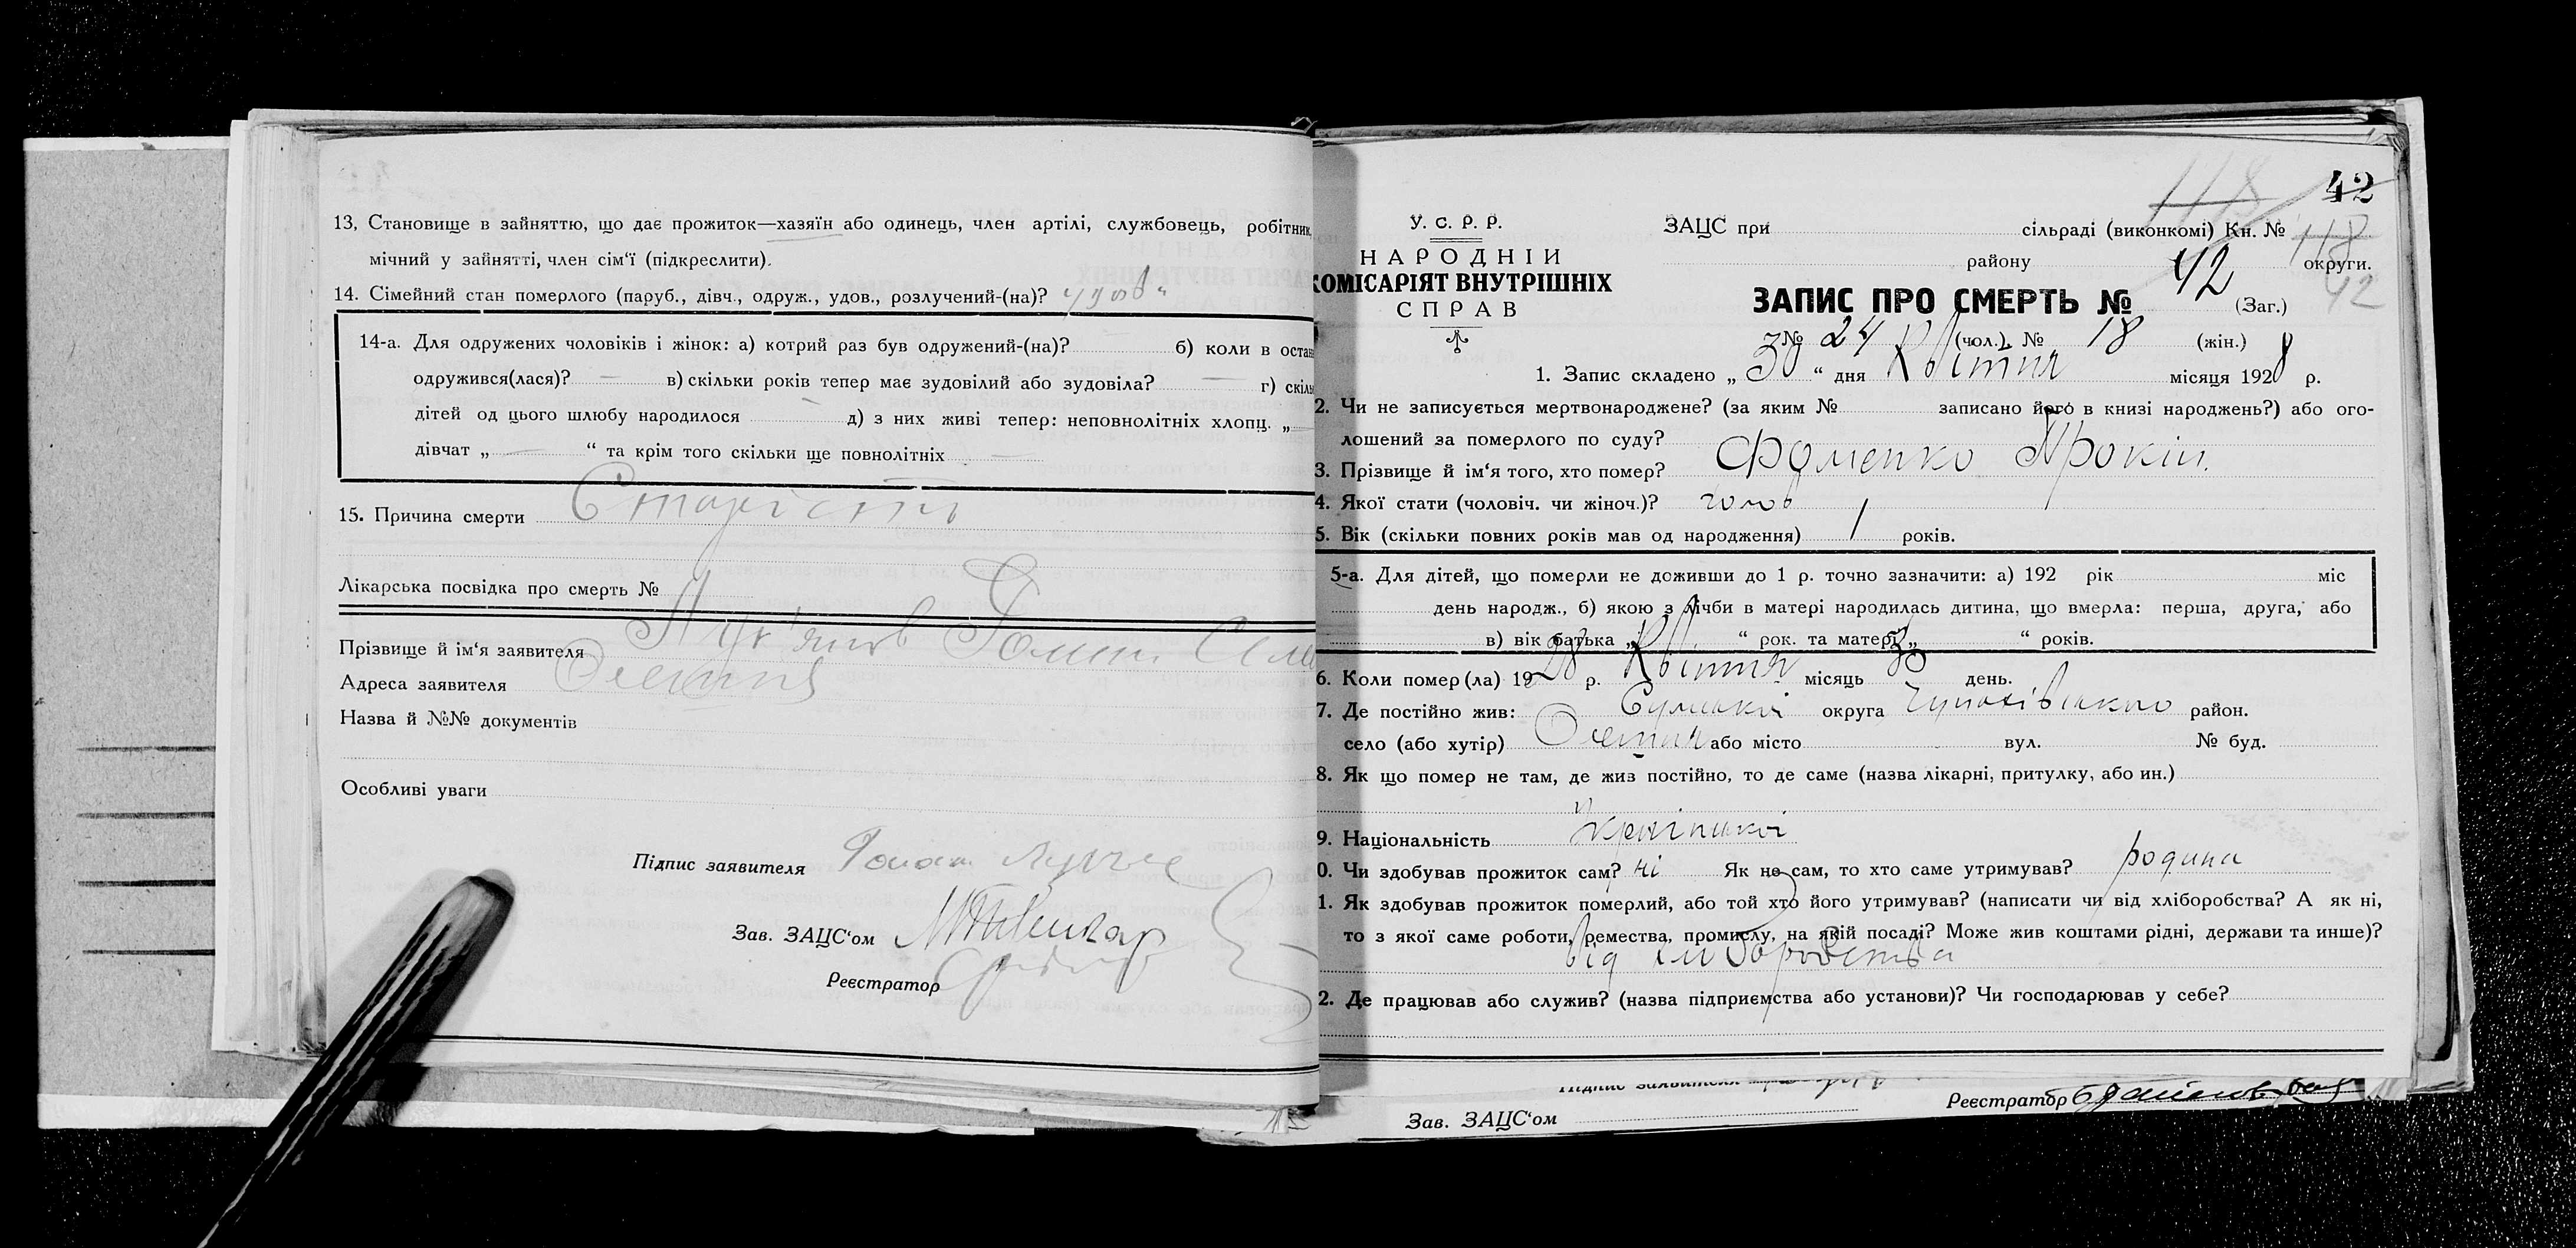 13, Становище в зайняттю, що дає прожиток—хазяїн або одинець, член артілі, службовець, робітник,
мічний у зайнятті, член сім'ї (підкреслити).
14. Сімейний стан померлого (паруб., дівч., одруж., удов., розлучений-(на)? удов
14-а. Для одружених чоловіків і жінок: а) котрий раз був одружений-(на)? б) коли в остан
одружився(лася)? — в) скільки років тепер має зудовілий або зудовіла? — г) скіль
дітей од цього шлюбу народилося д) з них живі тепер: неповнолітніх хлопц. „
дівчат „ — “ та крім того скільки ще повнолітніх —
15. Причина смерти Старість
Лікарська посвідка про смерть №
Прізвище й ім'я заявителя
Адреса заявителя
Назва й №№ документів
Особливі уваги
Підпис заявителя
Зав. ЗАЦС'ом
Реєстратор
42
118
У. С. Р. Р.
НАРОДНІЙ
КОМІСАРІЯТ ВНУТРІШНІХ
СПРАВ
ЗАЦС при сільраді (виконкомі) Кн. № 118
району округи.
42
ЗАПИС ПРО СМЕРТЬ № 42 (Заг.)
№ 24 (чол.), № 18 (жін.)
1. Запис складено „ 30 “ дня Квітня місяця 1928 р.
2. Чи не записується мертвонароджене? (за яким № записано його в книзі народжень?) або ого-
лошений за померлого по суду?
3. Прізвище й ім'я того, хто помер? Фоменко Прокіп.
4. Якої стати (чоловіч. чи жіноч.)? чолов
5. Вік (скільки повних років мав од народження) років.
5-а. Для дітей, що померли не доживши до 1 р. точно зазначити: а) 192 рік міс
день народж., б) якою з лічби в матері народилась дитина, що вмерла: перша, друга, або
в) вік батька „ “ рок. та матері „ “ років.
6. Коли помер(ла) 1928 р. Квітня місяць 30 день.
7. Де постійно жив: Сумської округа Чупахівського район.
село (або хутір) або місто вул. № буд.
8. Як що помер не там, де жив постійно, то де саме (назва лікарні, притулку, або ин.)
9. Національність Української
0. Чи здобував прожиток сам? ні Як не сам, то хто саме утримував? родина
1. Як здобував прожиток померлий, або той хто його утримував? (написати чи від хліборобства? А як ні,
то з якої саме роботи, ремества, промислу, на якій посаді? Може жив коштами рідні, держави та инше)?
від хліборобства
2. Де працював або служив? (назва підприємства або установи)? Чи господарював у себе?
Підпис заявителя
Зав. ЗАЦС'ом
Реєстратор